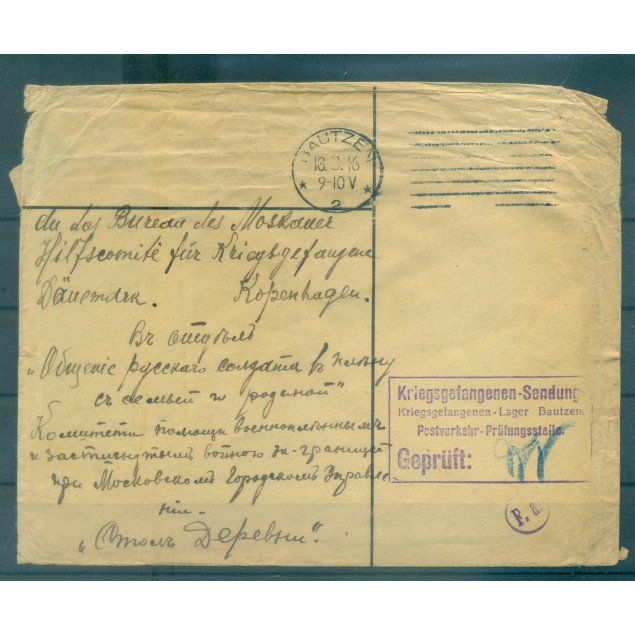 BAUTZEN
18. 3. 16
9-10 V
2
An das Bureau des Moskauer
Hilfscomité für Kriegsgefangene
Dänemark. Kopenhagen.
Въ отдѣлъ
„Общеніе русскаго солдата въ плѣну
съ семьей и родиной"
Комитета помощи военноплѣннымъ
и застигнутымъ войной за-границей
при Московскомъ Городскомъ Управле-
ніи.
„Столъ Деревни".
Kriegsgefangenen-Sendung
Kriegsgefangenen-Lager Bautzen.
Postverkehr-Prüfungsstelle.
Geprüft:
F. a.